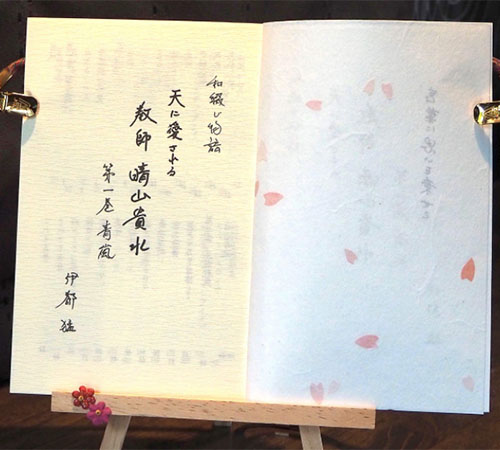 和綴じ物語
天に愛される
教師 晴山貴水
第一巻 青嵐
伊都 猛